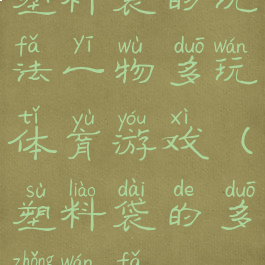 塑料袋的玩
fǎ yī wù duō wán
法一物多玩
tǐ yù yóu xì
体育游戏（
sù liào dài de duō
塑料袋的多
zhǒng wán fǎ